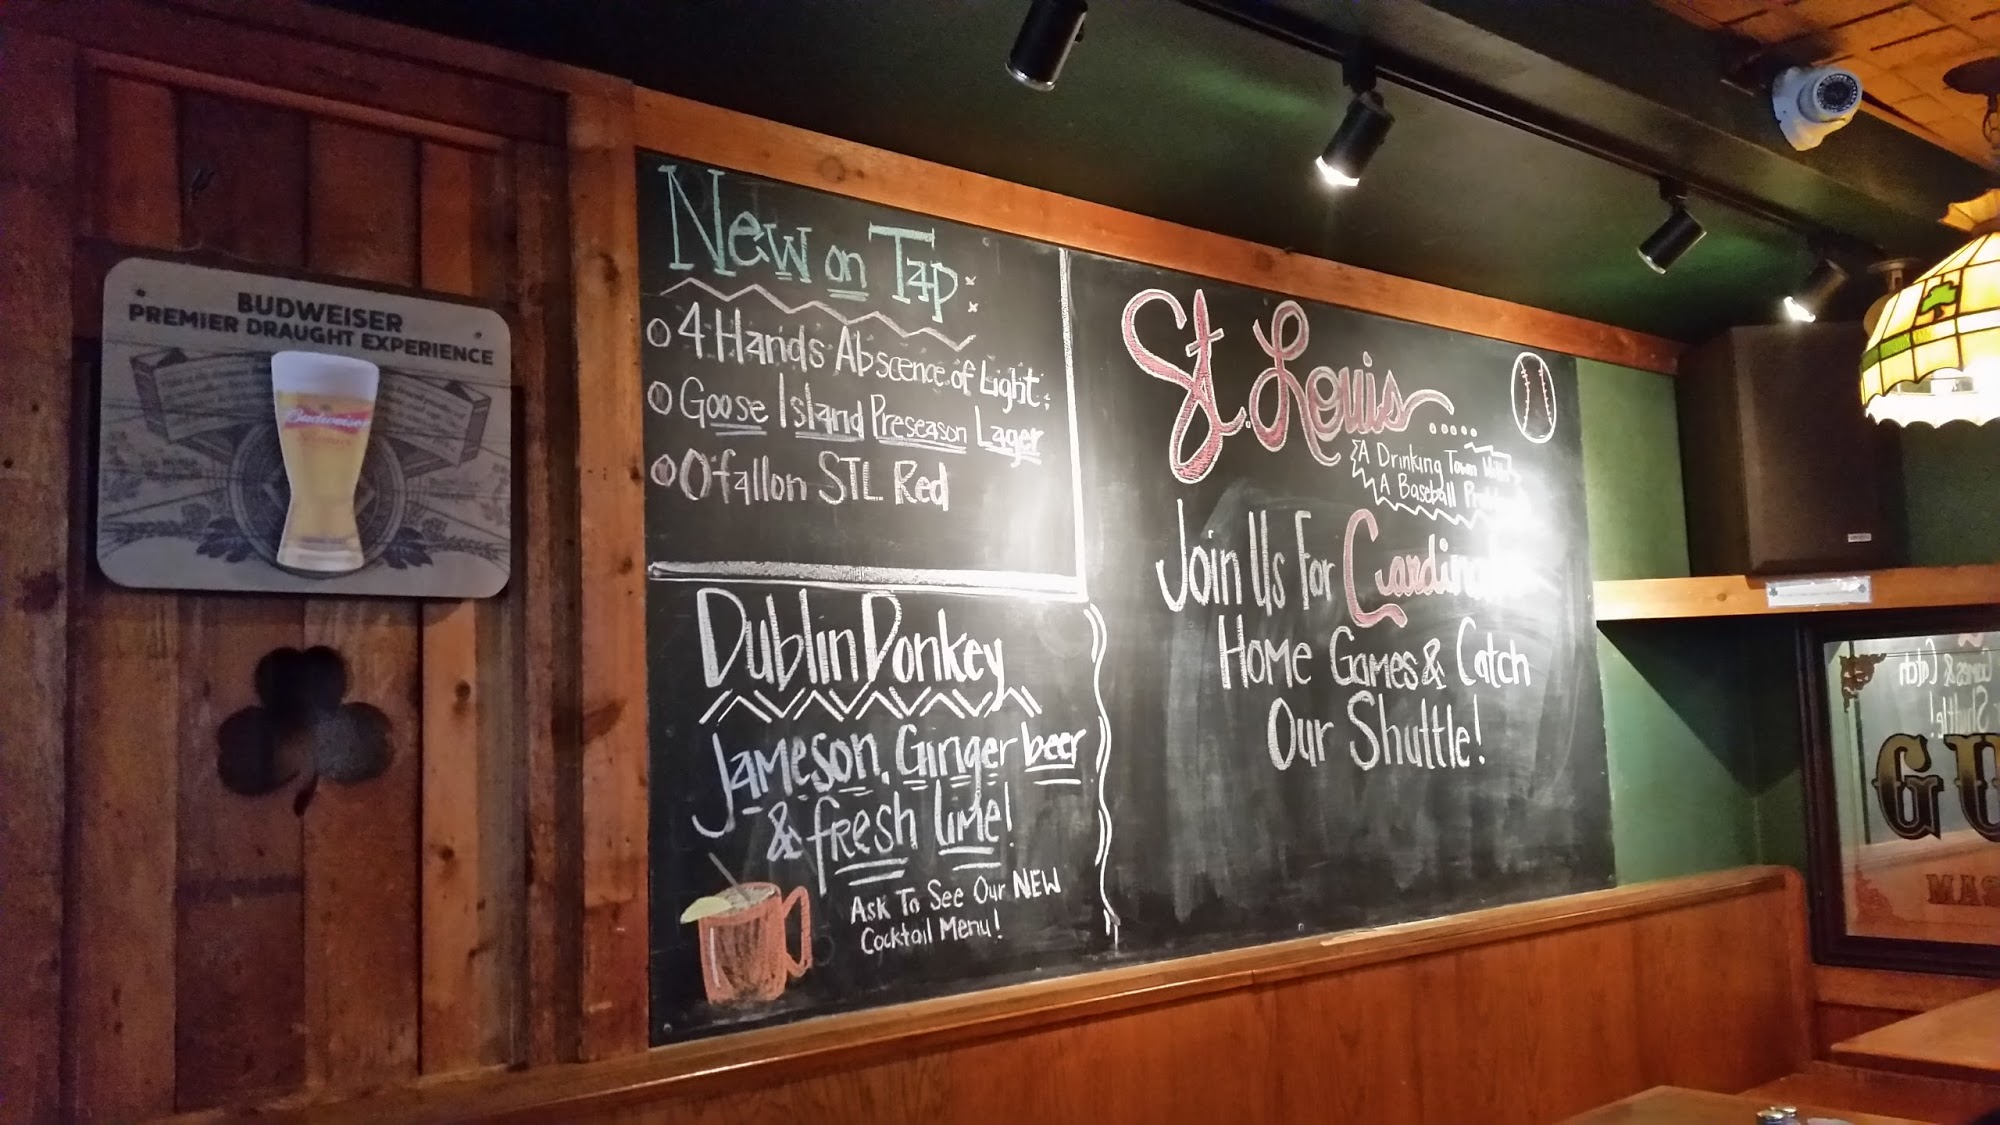 BUDWEISER
PREMIER DRAUGHT EXPERIENCE
Budweiser
New on Tap
4 Hands Abscence of Light
Goose Island Preseason Lager
O'fallon STL Red
Dublin Donkey
Jameson, Ginger beer
& fresh lime!
Ask To See Our NEW
Cocktail Menu!
St. Louis.....
A Drinking Town With
A Baseball
Join Us For Cardinals
Home Games & Catch
Our Shuttle!
GU